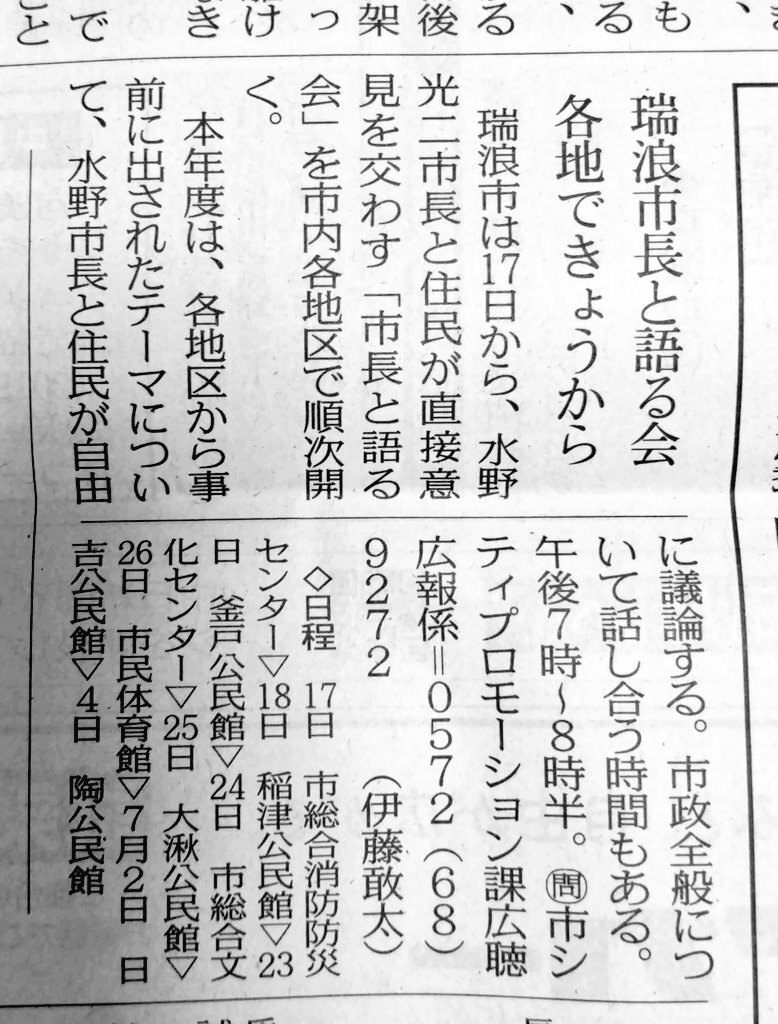 瑞浪市長と語る会
各地できょうから
瑞浪市は17日から、水野
光二市長と住民が直接意
見を交わす「市長と語る
会」を市内各地区で順次開
く。
本年度は、各地区から事
前に出されたテーマについ
て、水野市長と住民が自由
に議論する。市政全般につ
いて話し合う時間もある。
午後7時~8時半。㉄市シ
ティプロモーション課広聴
広報係=0572(68)
9272 (伊藤敢太)
◇日程 17日 市総合消防防災
センター▽18日 稲津公民館▽23
日 釜戸公民館▽24日 市総合文
化センター▽25日 大湫公民館▽
26日 市民体育館▽7月2日 日
吉公民館▽4日 陶公民館